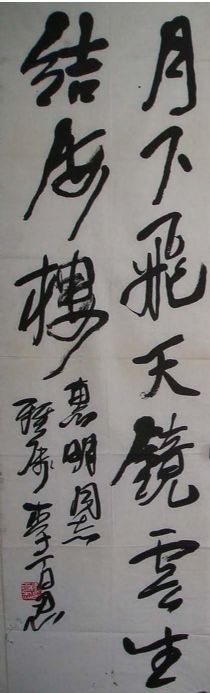 月下飛天鏡雲生
結海樓
惠明同志
雅屬 李百忍